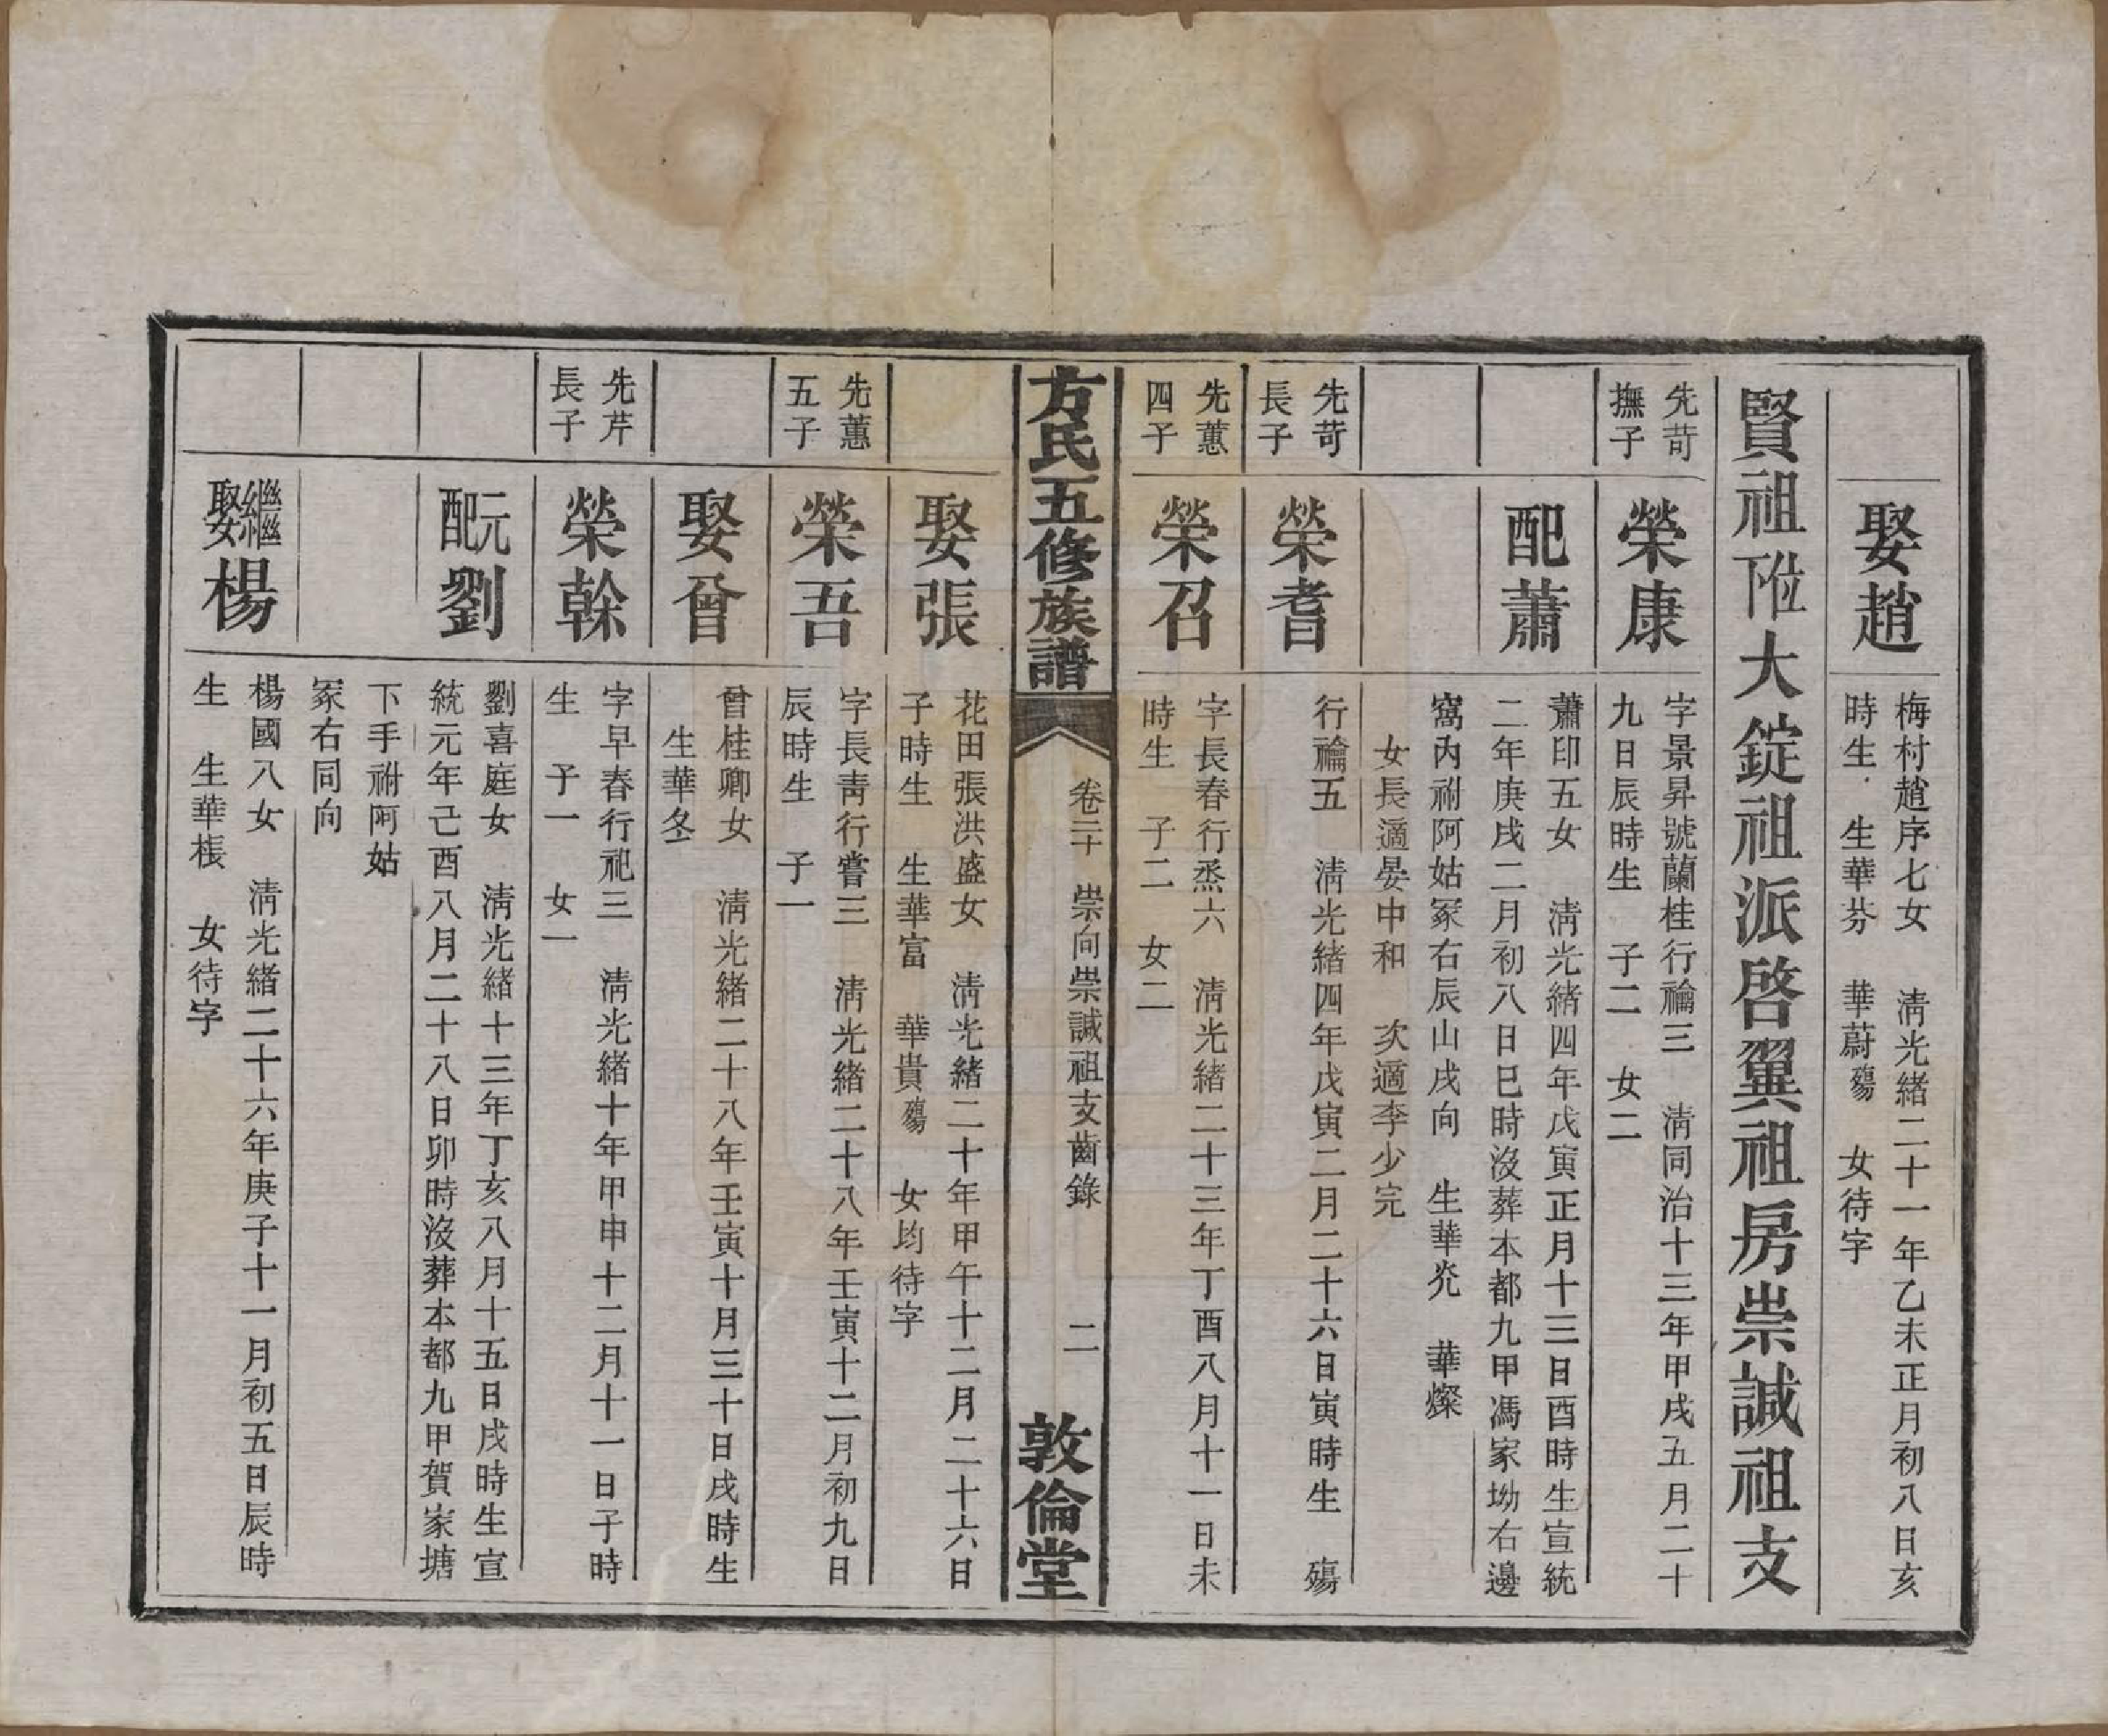 娶趙
梅村趙序七女　淸光緖二十一年乙未正月初八日亥
時生　生華芬　華蔚殤　女待字
賢祖下位大錠祖派啓翼祖房崇誠祖支
先苛
撫子
榮康
字景昇號蘭桂行禴三　淸同治十三年甲戌五月二十
九日辰時生　子二　女二
配蕭
蕭印五女　淸光緖四年戊寅正月十三日酉時生宣統
二年庚戌二月初八日巳時沒葬本都九甲馮家坳右邊
窩內祔阿姑冢右辰山戌向　生華炛　華燦
女長適晏中和　次適李少完
先苛
長子
榮耆
行禴五　淸光緖四年戊寅二月二十六日寅時生　殤
先蕙
四子
榮召
字長春行烝六　淸光緖二十三年丁酉八月十一日未
時生　子二　女二
方氏五修族譜
卷二十　崇向崇誠祖支齒錄
二
敦倫堂
娶張
花田張洪盛女　淸光緖二十年甲午十二月二十六日
子時生　生華富　華貴殤　女均待字
先蕙
五子
榮吾
字長靑行嘗三　淸光緖二十八年壬寅十二月初九日
辰時生　子一
娶曾
曾桂卿女　淸光緖二十八年壬寅十月三十日戌時生
生華冬
先芹
長子
榮榦
字早春行祀三　淸光緖十年甲申十二月十一日子時
生　子一　女一
元配劉
劉喜庭女　淸光緖十三年丁亥八月十五日戌時生宣
統元年己酉八月二十八日卯時沒葬本都九甲賀家塘
下手祔阿姑
冢右同向
繼娶楊
楊國八女　淸光緖二十六年庚子十一月初五日辰時
生　生華棖　女待字